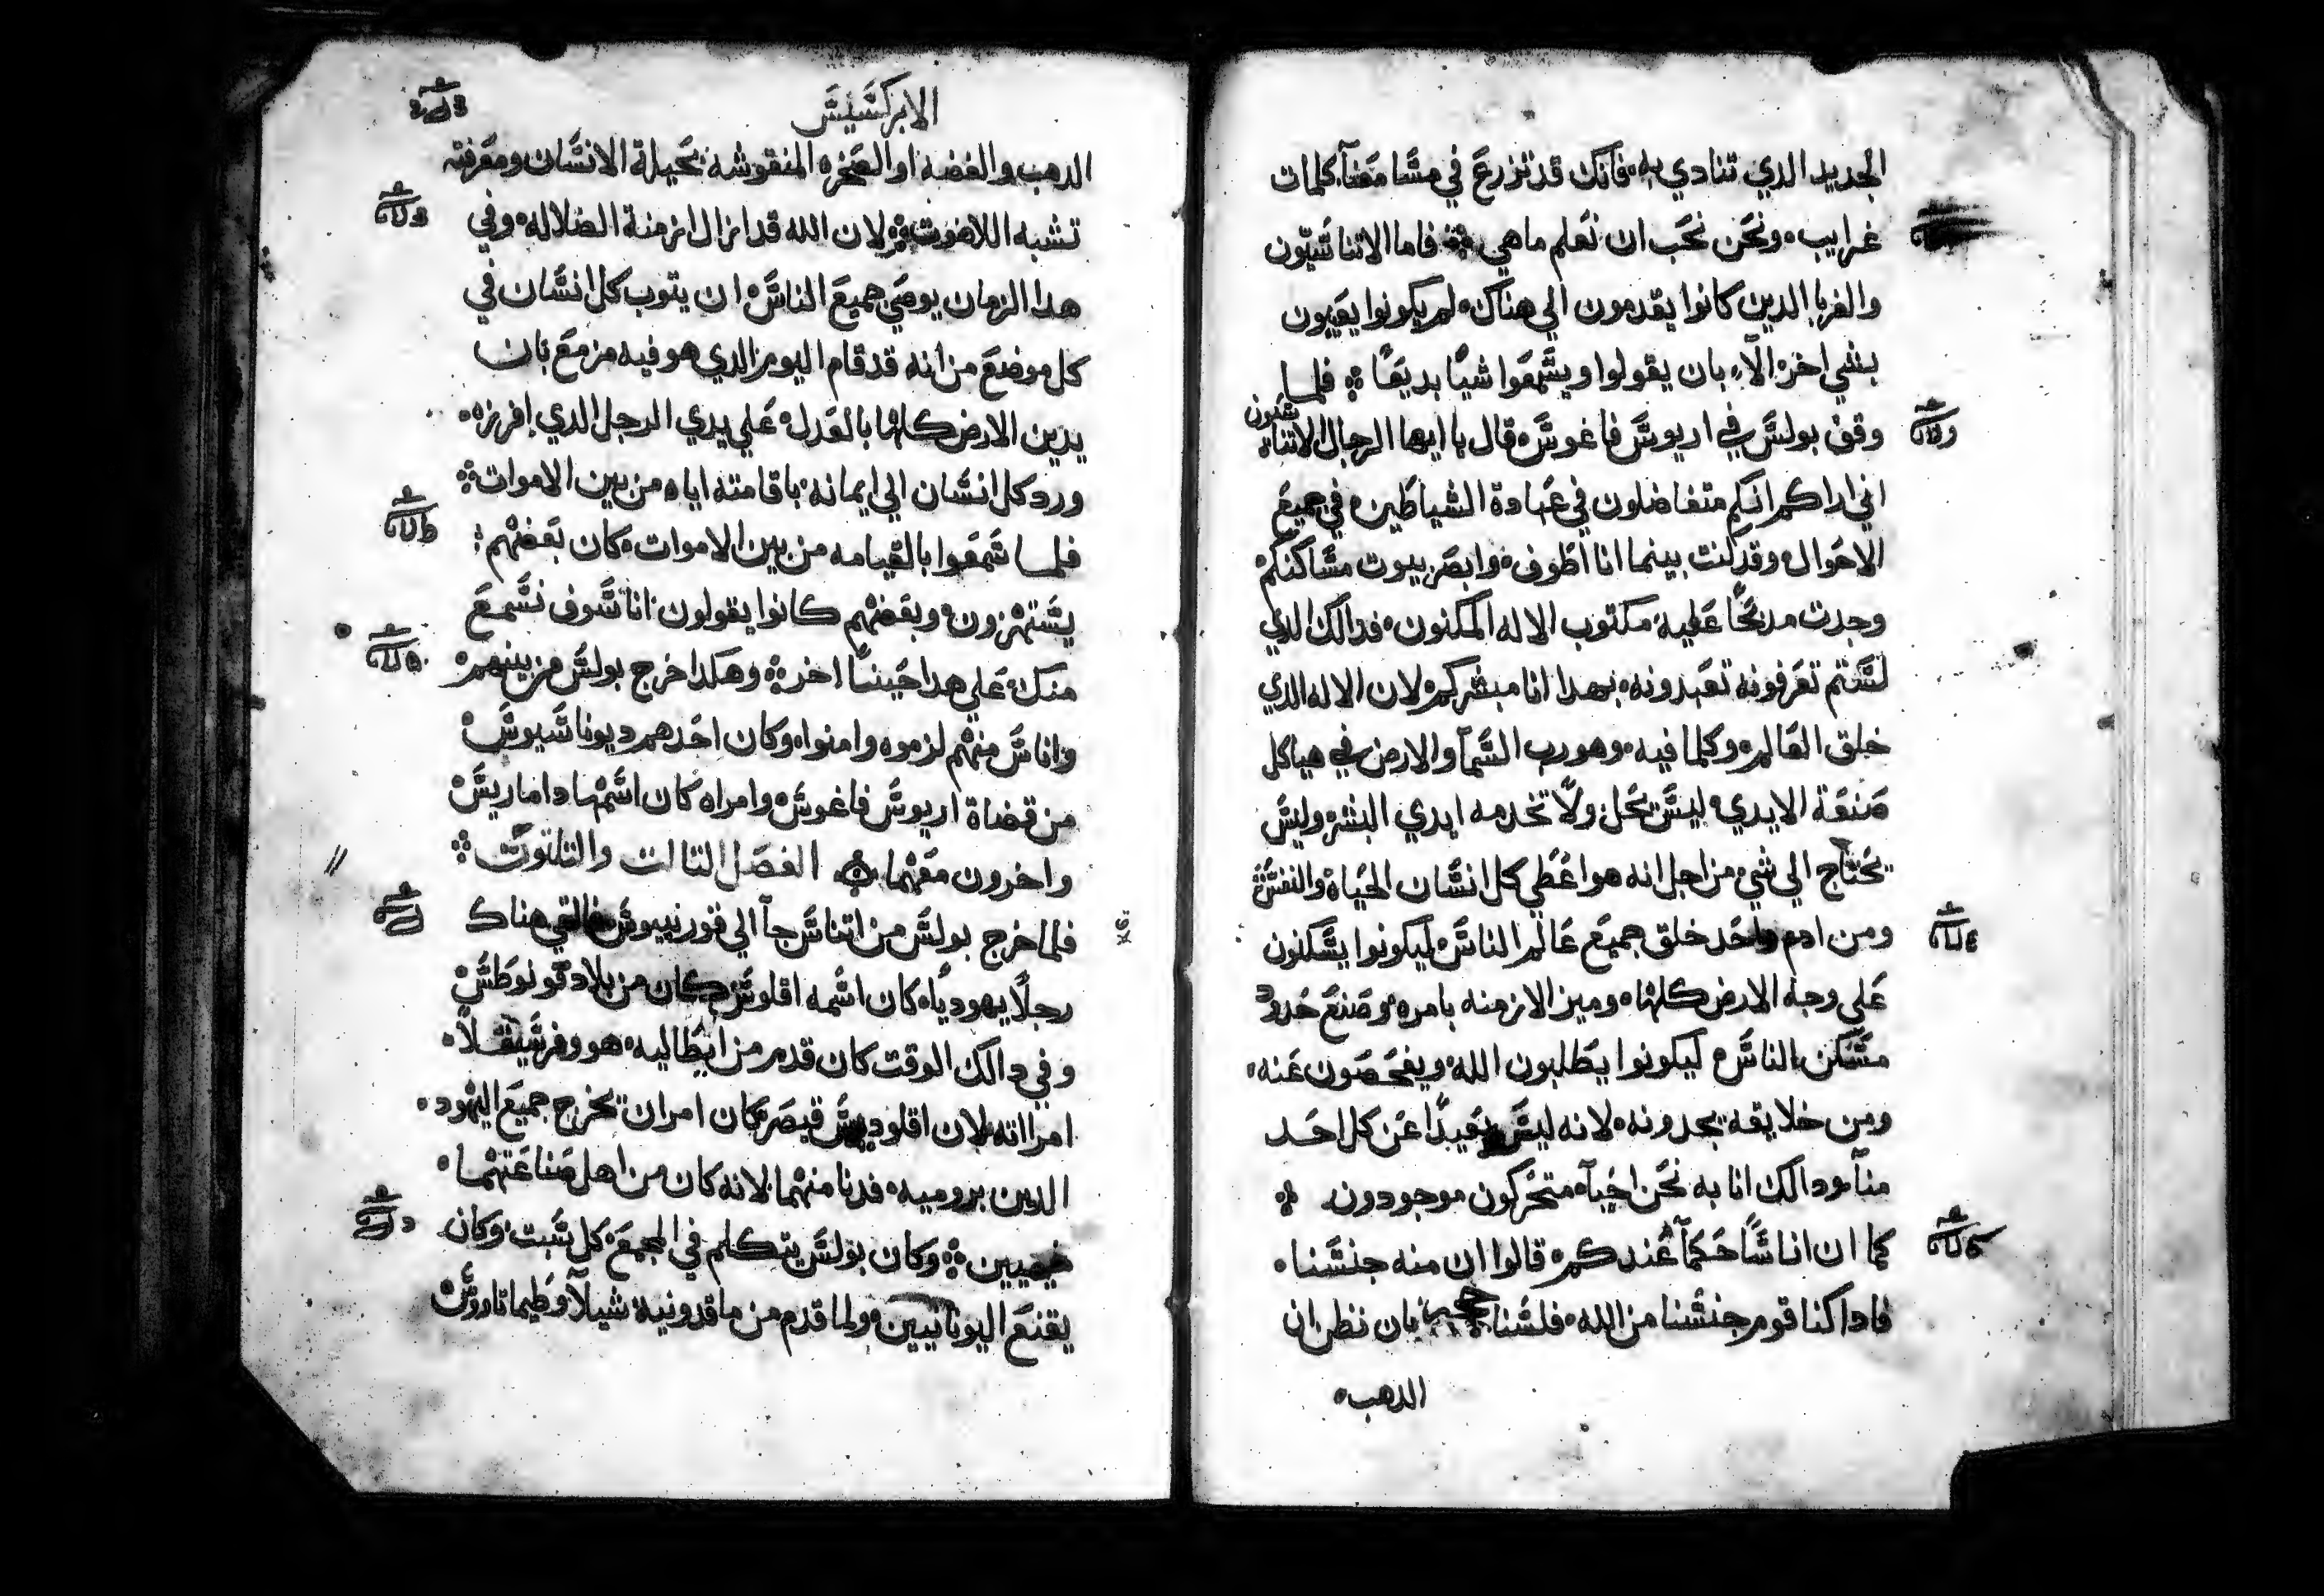 الجديد الدي تنادي به، فانك قد تزرع في مسامعنا كلمات
غرايب، ونحن نحب ان نعلم ما هي ⁘ فاما الاتناسيون
والغربا الدين كانوا يقدمون الي هناك، لم يكونوا يعيبون
بشي اخر، الآ، بان يقولوا ويسمعوا شيًا بديعًا ⁘ فلما
وقف بولس في اريوس فاغوس، قال يا ايها الرجال الاتناسيون
اني اراكم انكم متفاضلون في عبادة الشياطين، في جميع
الاحوال، وقد كنت بينما انا اطوف، وابصر بيوت مساكنكم
وجدت مدبحًا عليه، مكتوب الاله المكنون، فدالك الدي
لستم تعرفونه تعبدونه، بهدا انا مبشركم، لان الاله الدي
خلق العالم، وكلما فيه، وهو رب السمآ والارض في هياكل
صنعة الايدي، ليس يحل، ولا تخدمه ايدي البشر، وليس
يحتاج الي شي، من اجل انه هو اعطي كل انسان الحياة والنفس
ومن ادم واحد خلق جميع عالم الناس، ليكونوا يسكنون
علي وجه الارض كلها، وميز الازمنه بامره، وصنع حدود
مسكن الناس، ليكونوا يطلبون الله، ويفحصون عنه،
ومن خلايقه يجدونه، لانه ليس بعيدًا عن كل احد
منآ، ودالك انا به نحن احيآ، متحركون موجودون ⁘
كما ان اناسًا حكمآ عندكم، قالوا ان منه جنسنا،
فادا كنا قوم جنسنا من الله، فلسنا بان نظن ان
الدهب،
الابركسيس
الدهب والفضه او الصخره المنقوشه بحيلة الانسان ومعرفته
تشبه اللاهوت ⁘ لان الله قد ازال ازمنة الضلاله، وفي
هدا الزمان يوصي جميع الناس، ان يتوب كل انسان في
كل موضع من انه قد قام اليوم الدي هو فيه مزمع بان
يدين الارض كلها بالعدل، علي يدي الرجل الدي افرزه،
ورد كل انسان الي ايمانه، باقامته اياه من بين الاموات ⁘
فلما سمعوا بالقيامه من بين الاموات، كان بعضهم
يستهزون، وبعضهم كانوا يقولون انا سوف نسمع
منك علي هدا حينًا اخر ⁘ وهكدا خرج بولس من بينهم
واناس منهم لزموه وامنوا، وكان احدهم ديوناسيوس
من قضاة اريوس فاغوس، وامراه كان اسمها داماريس
واخرون معهما، الفصل التالت والتلتون ⁘
فلما خرج بولس من اتناس جآ الي قورنتيوس فالقي هناك
رجلًا يهوديًا، كان اسمه اقلوس، كان من بلاد قونوطس
وفي دالك الوقت كان قدم من ايطاليه، هو وفرسيقلا،
امراته لان اقلوديس قيصر، كان امر ان تخرج جميع اليهود،
الدين بروميه، فدنا منهما لانه كان من اهل صناعتهما،
خيميين ⁘ وكان بولس يتكلم في المجمع كل سبت، وكان
يقنع اليونانيين، ولما قدم من ماقدونية شيلآ وطيماتاوس